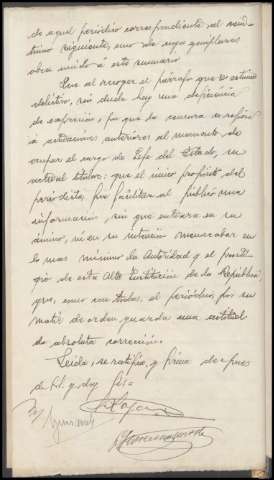 de aquel periódico correspondiente al
siguiente, uno de cuyos ejemplares
obra unido a este sumario
Que al recoger el párrafo que se estima
delictivo, sin duda hay una deficiencia
de expresión, ya que la censura se refería
a actuaciones anteriores al momento de
ocupar el cargo de Jefe del Estado, su
actual titular: que el único propósito del
periodista fue facilitar al público una
información, sin que entrara en su
ánimo, ni en su intención menoscabar en
lo mas mínimo la Autoridad y el presti-
gio de esta Alta Institución de la República
que, como con todas, el periódico, por su
matiz de orden, guarda una actitud
de absoluta corrección.
Leida, se ratifica y firma despues
de S.S. y doy fé =